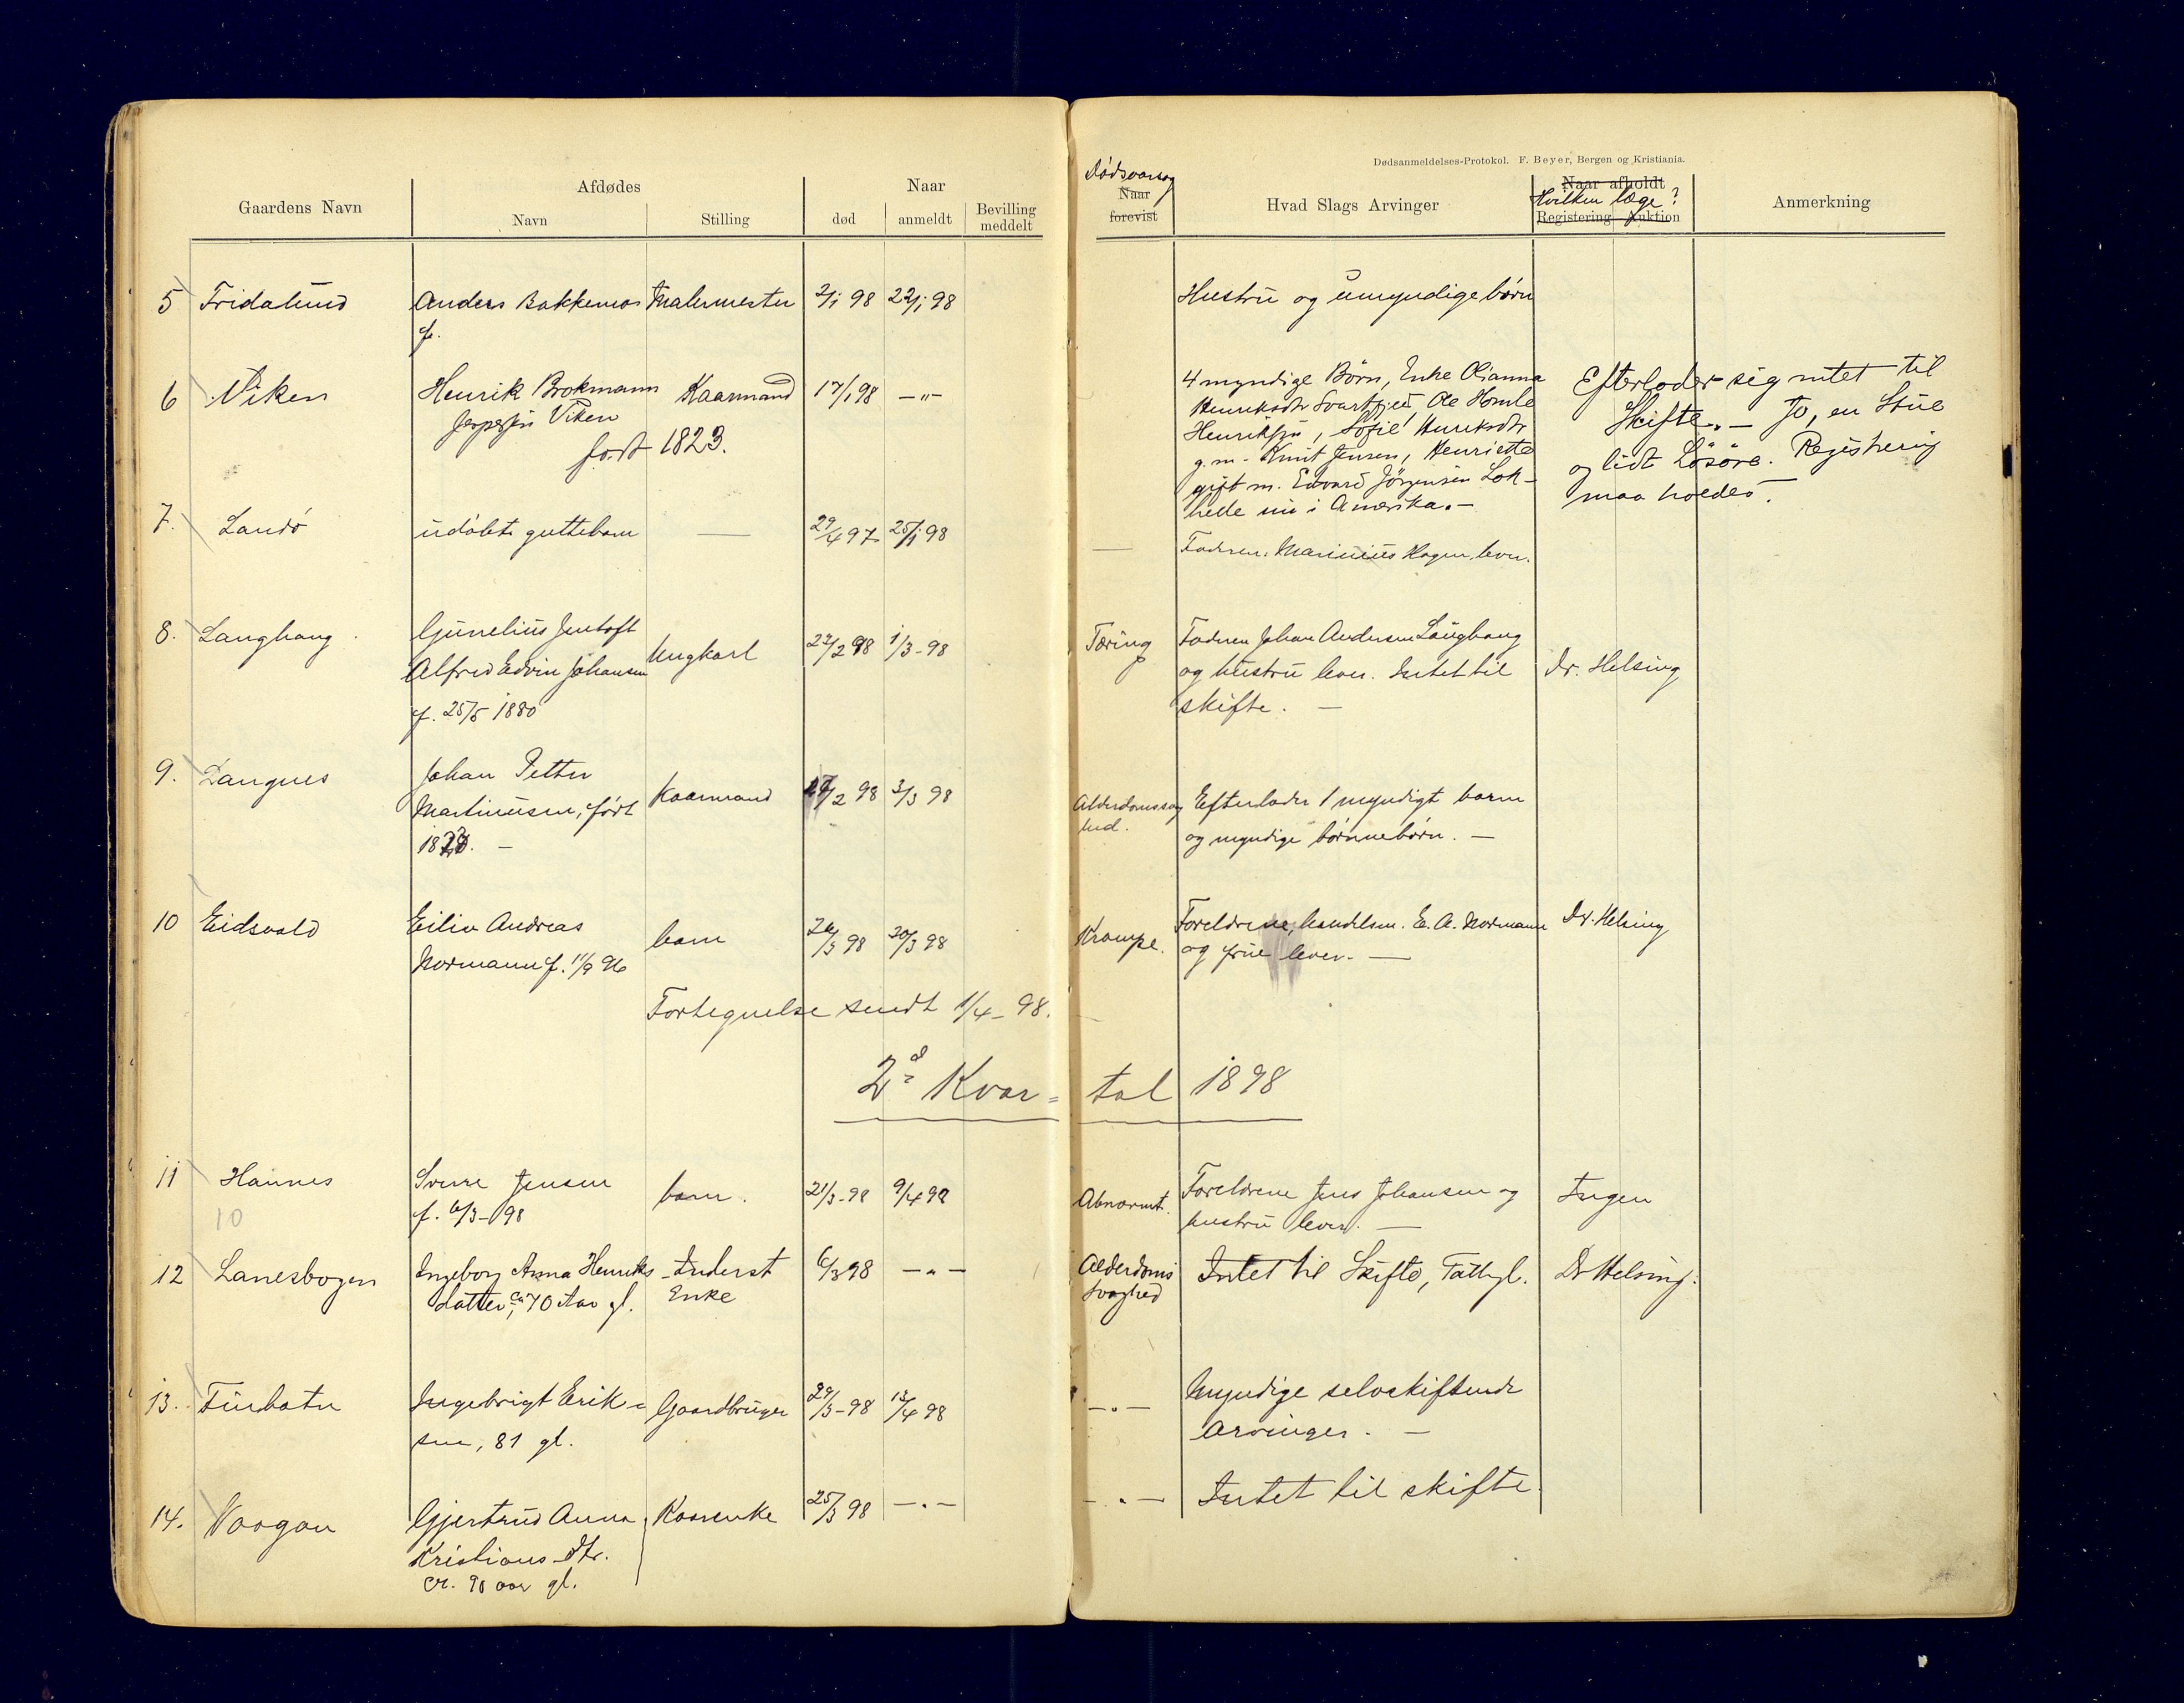 Dødsanmeldelses-Protokol. F. Beyer, Bergen og Kristiania.
Gaardens Navn
Afdødes
Navn
Stilling
Naar
død
anmeldt
Bevilling
meddelt
Dødsaarsag
Naar
forevist
Hvad Slags Arvinger
Naar afholdt
Hvilken læge?
Registering Auktion
Anmerkning
5 Fridalund Anders Bakkemo Malermester 2/1 98 22/1 98 Hustru og umyndige børn
f.
6 Viken Henrik Brokmann Kaarmand 17/1 98 — " —
Jespersen Viken
født 1823.
4 myndige Børn, Enke Olianna
Henriksdtr Svartfjed, Ole Hemle
Henriksen, Sofie Henriksdtr
g.m. Knut Jensen, Henriette
gift m. Edvard Jörgensen Lok-
helle nu i Amerika. —
Efterlader sig intet til
Skifte. — Jo, en Stue
og lidt Løsøre. Registrering
maa holdes.
7. Landö udöbt guttebarn — 29/4 97 25/1 98 — Faderen: Marinius Hagen, lever.
8. Langhaug Gunelius Jentoft
Alfred Edvin Johansen
f. 25/5 1880
Ungkarl 22/2 98 1/3 - 98 Tæring
Faderen Johan Andersen Langhaug
og hustru lever. Intet til
skifte. —
Dr. Helsing
9. Langnes Johan Petter
Martinusen, født
18
Kaarmand 27/2 98 3/3 98 Alderdomssvag
hed.
Efterlader 1 myndigt barn
og myndige børnebørn. —
10 Eidsvold Eiliv Andreas
Normann f. 11/9 96
barn 26/3 98 30/3 98 Krampe.
Foreldrene, handelsm. E. A. Normann
og frue lever. —
Dr. Helsing
Fortegnelse sendt 1/4 - 98.
2d Kvar= tal 1898
11 Hannes Sverre Jensen
10 f. 6/3 - 98
barn. 21/3 - 98 9/4 98 Abnormt.
Foreldrene Jens Johansen og
hustru lever. —
Ingen
12 Lanesbogen Ingeborg Anna Henriks
datter, ca 70 Aar gl.
Inderst
Enke
6/3 98 — " — Alderdoms
svaghed
Intet til Skifte, Fattigl. Dr Helsing.
13. Finbotn Ingebrigt Erik=
sen, 81 gl.
Gaardbruger 29/3 - 98 13/4 98 — " —
Myndige selvskiftende
Arvinger. —
14. Vaagan Gjertrud Anna
Kristians dtr.
ca. 90 aar gl.
Kaarenke 25/3 98 — " — — " — Intet til skifte.